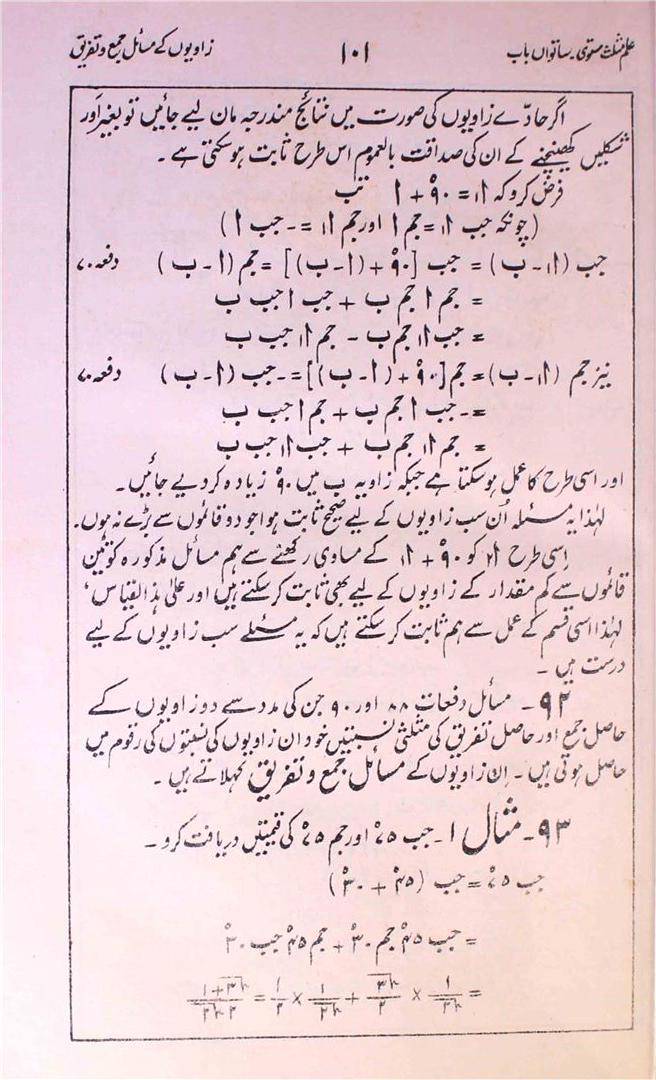 علم مثلث مستوی۔ ساتواں باب ۱۰۱ زاویوں کے مسائل جمع و تفریق
اگر حادّے زاویوں کی صورت میں نتائج مندرجہ مان لیے جائیں تو بغیر اور
شکلیں کھینچنے کے ان کی صداقت بالعموم اس طرح ثابت ہو سکتی ہے۔
فرض کرو کہ ا۱ = ۹۰° + ا تب
(چونکہ جب ا۱ = جم ا اور جم ا۱ = - جب ا)
جب (ا۱ - ب) = جب [۹۰° + (ا - ب)] = جم (ا - ب) دفعہ ۷۰
= جم ا جم ب + جب ا جب ب
= جب ا۱ جم ب - جم ا۱ جب ب
نیز جم (ا۱ - ب) = جم [۹۰° + (ا - ب)] = - جب (ا - ب) دفعہ ۷۰
= - جب ا جم ب + جم ا جب ب
= جم ا۱ جم ب + جب ا۱ جب ب
اور اسی طرح کا عمل ہو سکتا ہے جبکہ زاویہ ب میں ۹۰° زیادہ کر دیے جائیں۔
لہٰذا یہ مسئلہ اُن سب زاویوں کے لیے صحیح ثابت ہوا جو دو قائموں سے بڑے نہ ہوں۔
اِسی طرح ا۲ کو ۹۰° + ا۱ کے مساوی رکھنے سے ہم مسائل مذکورہ کو تین
قائموں سے کم مقدار کے زاویوں کے لیے بھی ثابت کر سکتے ہیں اور علیٰ ہذا القیاس،
لہٰذا اسی قسم کے عمل سے ہم ثابت کر سکتے ہیں کہ یہ مسئلے سب زاویوں کے لیے
درست ہیں۔
۹۲۔ مسائل دفعات ۸۸ اور ۹۰ جن کی مدد سے دو زاویوں کے
حاصل جمع اور حاصل تفریق کی مثلثی نسبتیں خود ان زاویوں کی نسبتوں کی رقوم میں
حاصل ہوتی ہیں۔ اِن زاویوں کے مسائل جمع و تفریق کہلاتے ہیں۔
۹۳۔ مثال ۱۔ جب ۷۵° اور جم ۷۵° کی قیمتیں دریافت کرو۔
جب ۷۵° = جب (۴۵° + ۳۰°)
= جب ۴۵° جم ۳۰° + جم ۴۵° جب ۳۰°
= ۱/√۲ × √۳/۲ + ۱/√۲ × ۱/۲ = (√۳+۱)/(۲√۲)